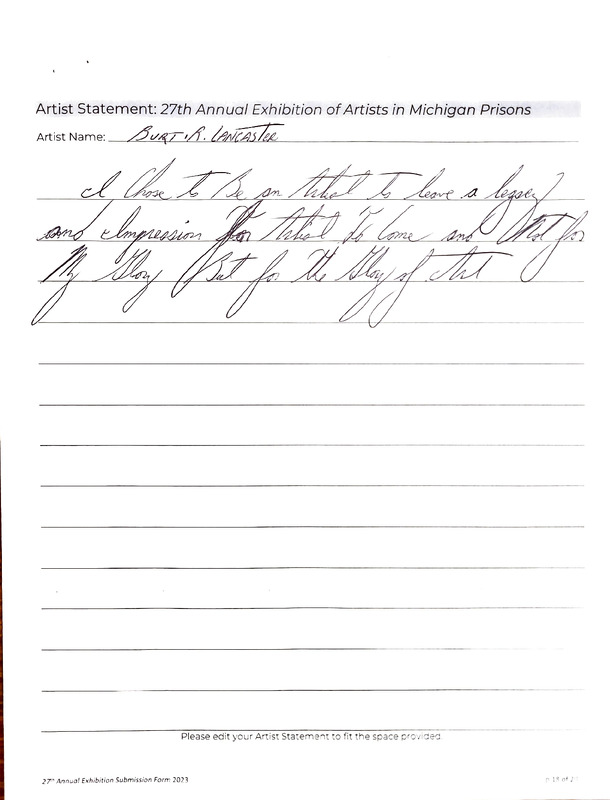 Artist Statement: 27th Annual Exhibition of Artists in Michigan Prisons
Artist Name: BURT.R. LANCASTER
I Chose to Be an Artist to leave a legacy
and Impression for Artist To Come and Not for
My Glory But for the Glory of Art
Please edit your Artist Statement to fit the space provided.
27th Annual Exhibition Submission Form 2023